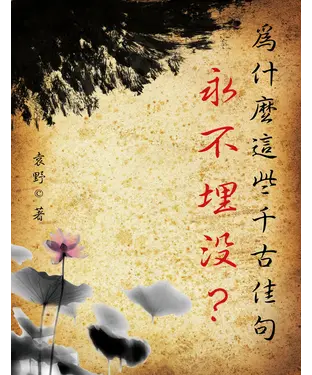 為什麼這些千古佳句
永不埋没？
袁野©著